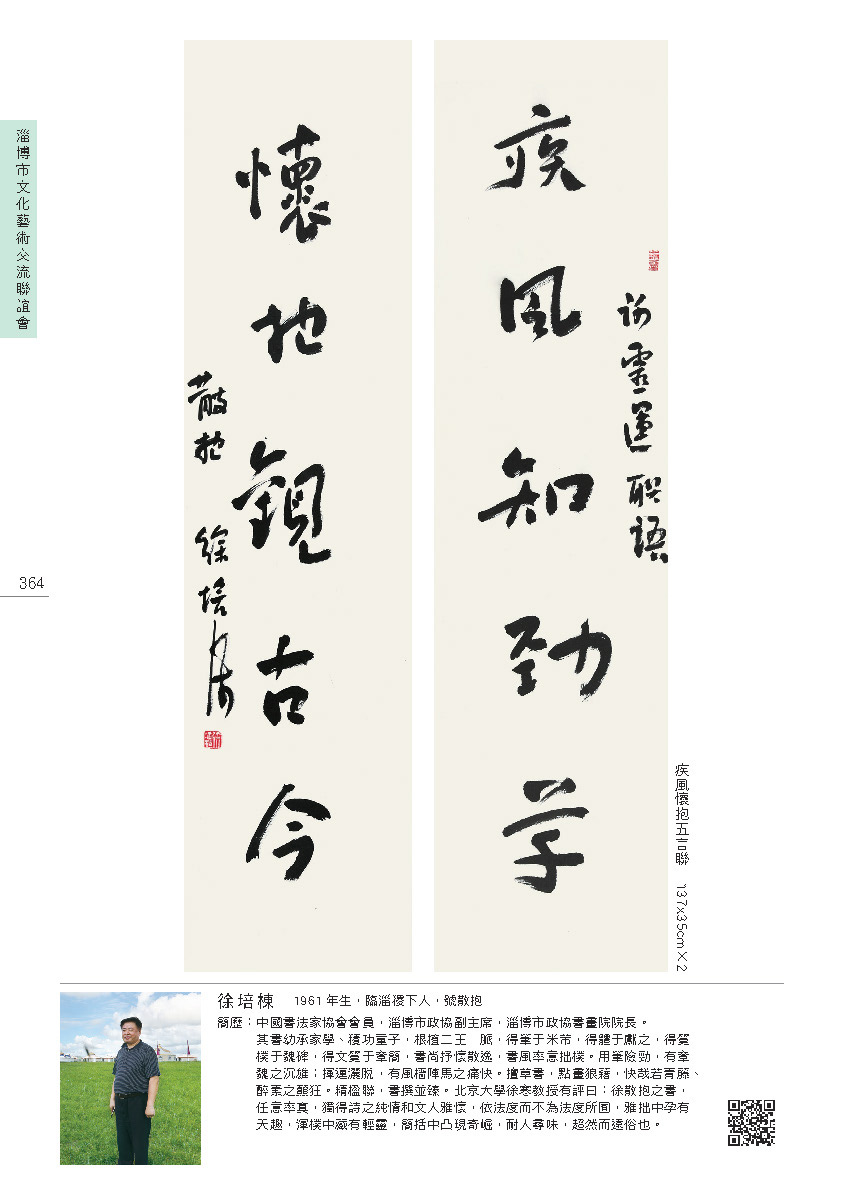 淄博市文化藝術交流聯誼會
364
謝靈運聯語
疾風知勁草
懷抱觀古今
散抱 徐培棟
疾風懷抱五言聯 137x35cm×2
徐培棟 1961年生，臨淄稷下人，號散抱
簡歷：中國書法家協會會員，淄博市政協副主席，淄博市政協書畫院院長。
其書幼承家學、積功童子，根植二王 脈，得筆于米芾，得體于獻之，得質
樸于魏碑，得文質于秦簡，書尚抒懷散逸，書風率意拙樸。用筆險勁，有秦
魏之沉雄；揮運灑脫，有風檣陣馬之痛快。擅草書，點畫狼藉，快哉若青藤、
醉素之顛狂。精楹聯，書撰並臻。北京大學徐寒教授有評曰：徐散抱之書，
任意率真，獨得詩之純情和文人雅懷，依法度而不為法度所囿，雅拙中孕有
天趣，渾樸中蘊有輕靈，簡括中凸現奇崛，耐人尋味，超然而遠俗也。